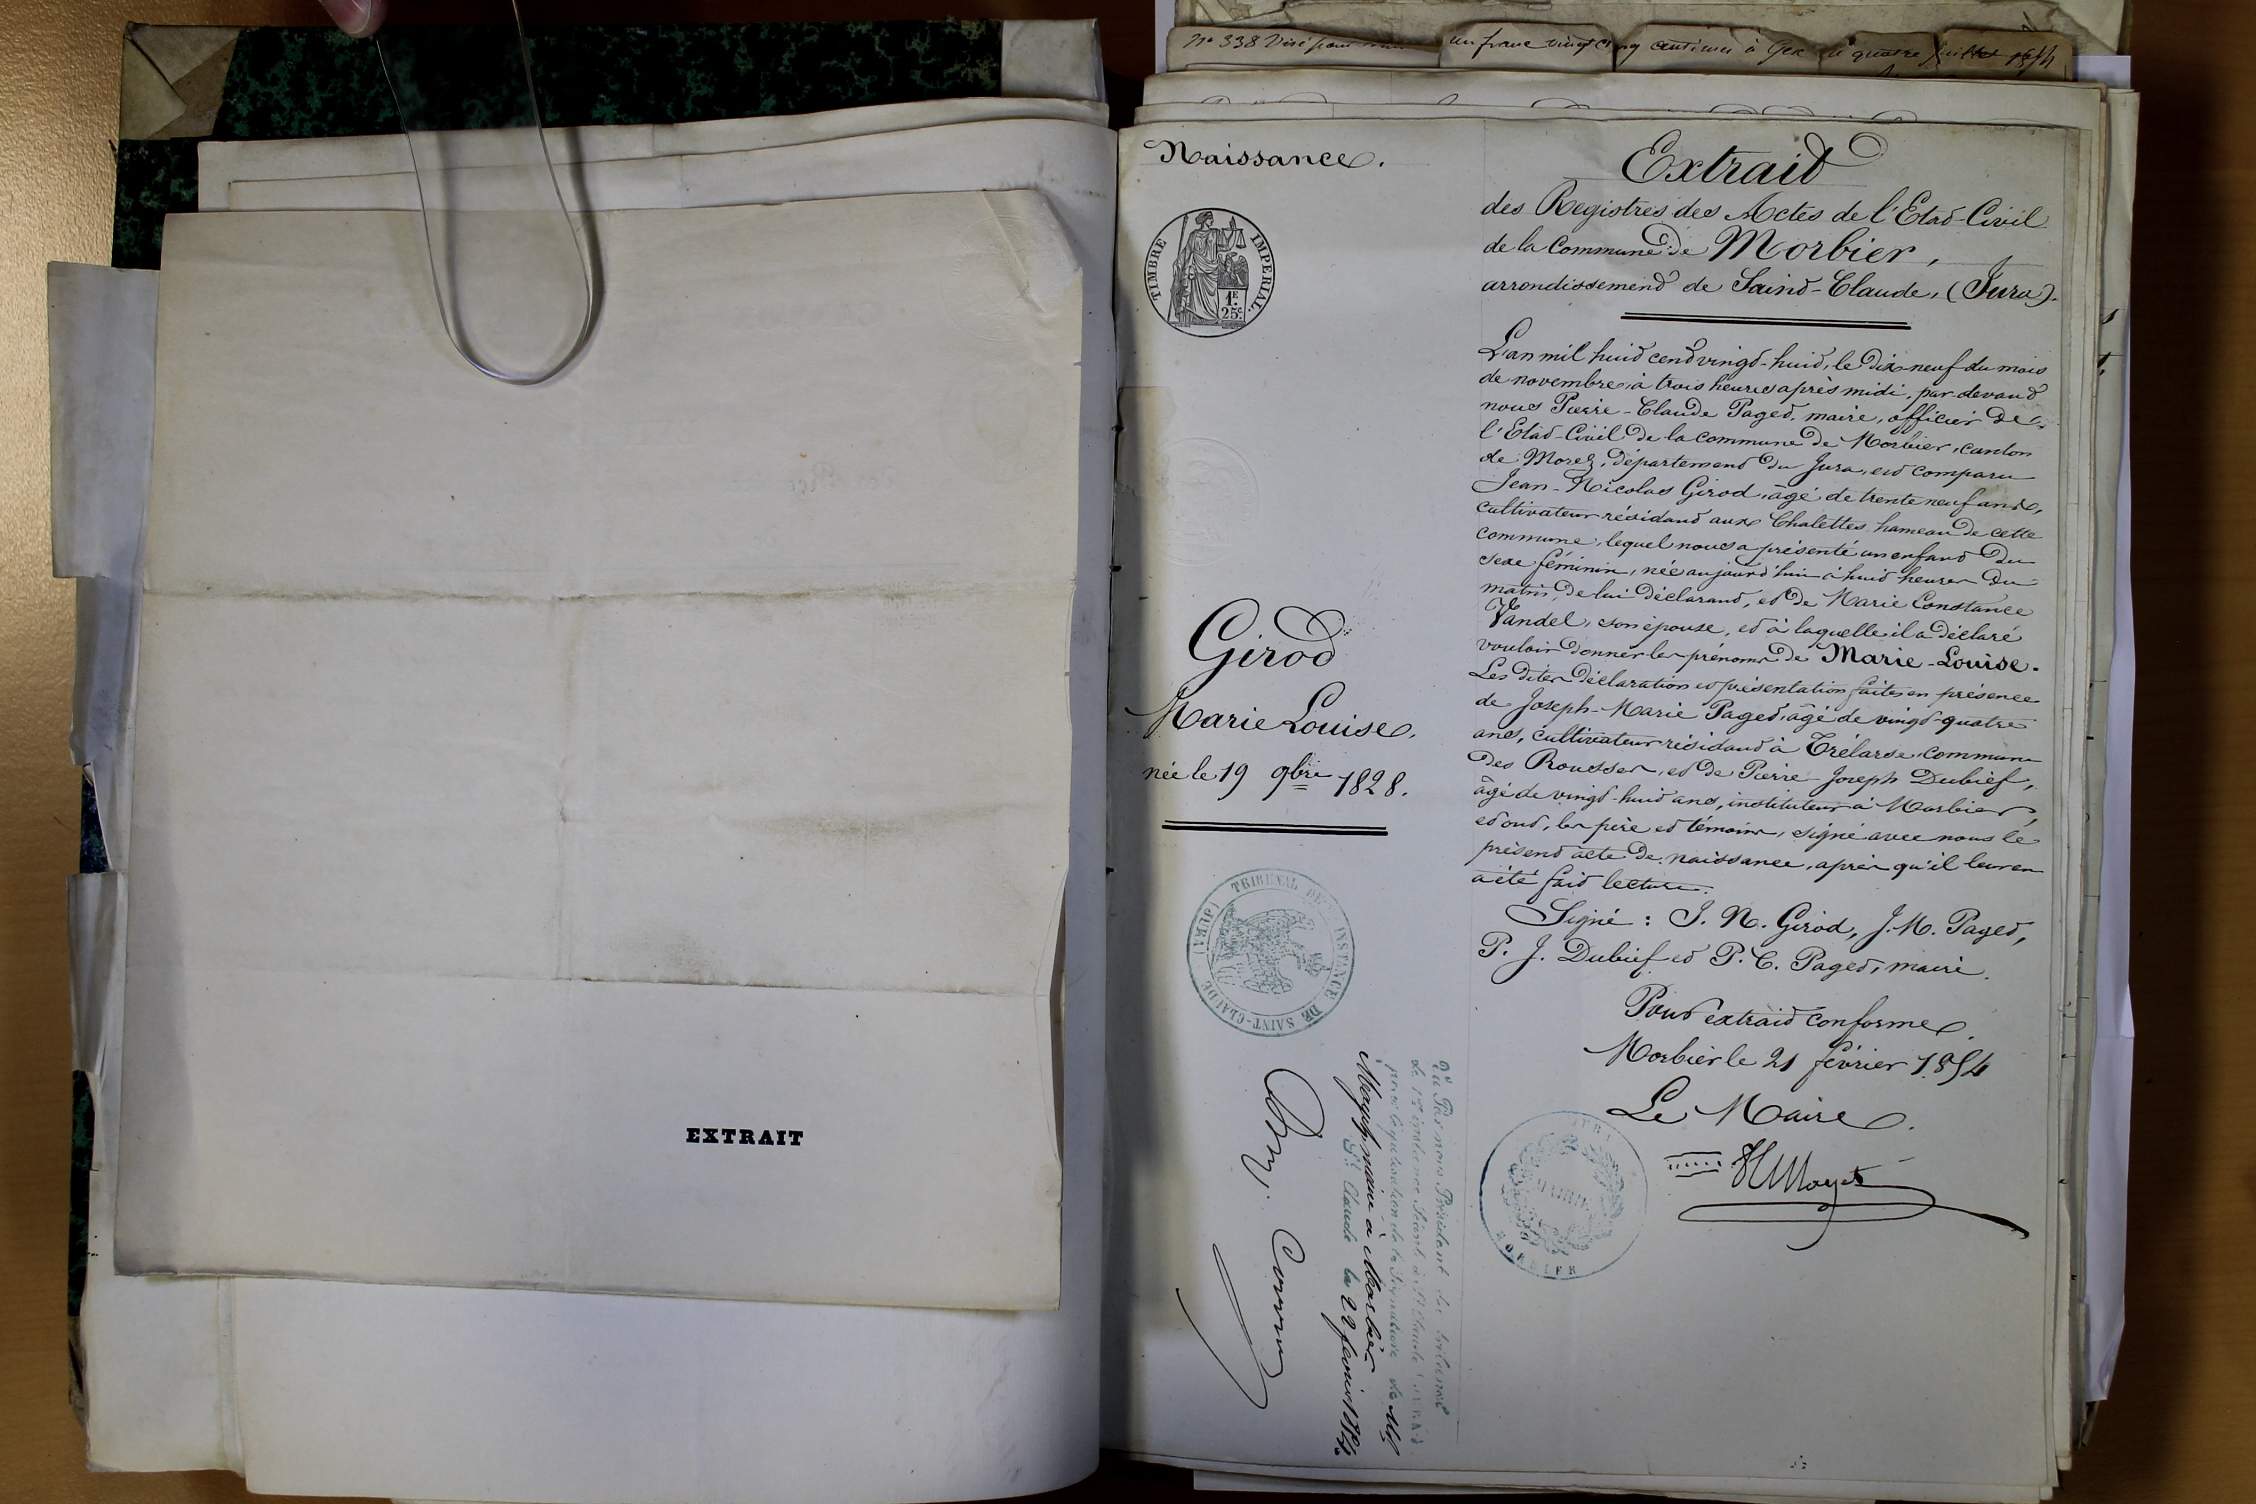 EXTRAIT
un franc vingt cinq centimes à Gex le quatre juillet 1854
Naissance.
TIMBRE IMPERIAL.
1F.
25c.
Girod
Marie Louise.
née le 19 9bre 1828.
TRIBUNAL DE 1re INSTANCE DE SAINT-CLAUDE (JURA)
Vu Par nous Président du tribunal
de 1re instance Séant à St Claude
pour légalisation de la Signature de Mr
maire à Morbier
St Claude le 22 février 1854.
Extrait
des Registres des Actes de l'Etat-Civil
de la Commune de Morbier,
arrondissement de Saint-Claude, (Jura).
L'an mil huit cent vingt-huit, le dix-neuf du mois
de novembre, à trois heures après midi, par-devant
nous Pierre-Claude Paget, maire, officier de
l'Etat-Civil de la commune de Morbier, canton
de Morez, département du Jura, est comparu
Jean-Nicolas Girod, âgé de trente neuf ans,
cultivateur résidant aux Chalettes hameau de cette
commune, lequel nous a présenté un enfant du
sexe féminin, née aujourd'hui à huit heures du
matin, de lui déclarant, et de Marie Constance
Vandel, son épouse, et à laquelle il a déclaré
vouloir donner les prénoms de Marie-Louise.
Les dites déclaration et présentation faites en présence
de Joseph-Marie Paget, âgé de vingt-quatre
ans, cultivateur résidant à Trélarse, commune
des Rousses, et de Pierre-Joseph Dubief,
âgé de vingt-huit ans, instituteur à Morbier,
et ont, les père et témoins, signé avec nous le
présent acte de naissance, après qu'il leur en
a été fait lecture.
Signé : J. N. Girod, J. M. Paget,
P. J. Dubief et P. C. Paget, maire.
Pour extrait conforme
Morbier le 21 février 1854
Le Maire.
MAIRIE
MORBIER